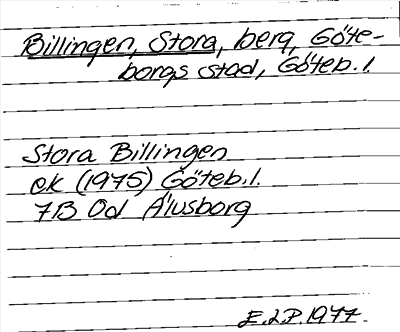 Billingen, Stora, berg, Göte-
borgs stad, Göteb. l.
Stora Billingen
ek (1975) Göteb. l.
7B Od Älvsborg
E.L.P. 1977.